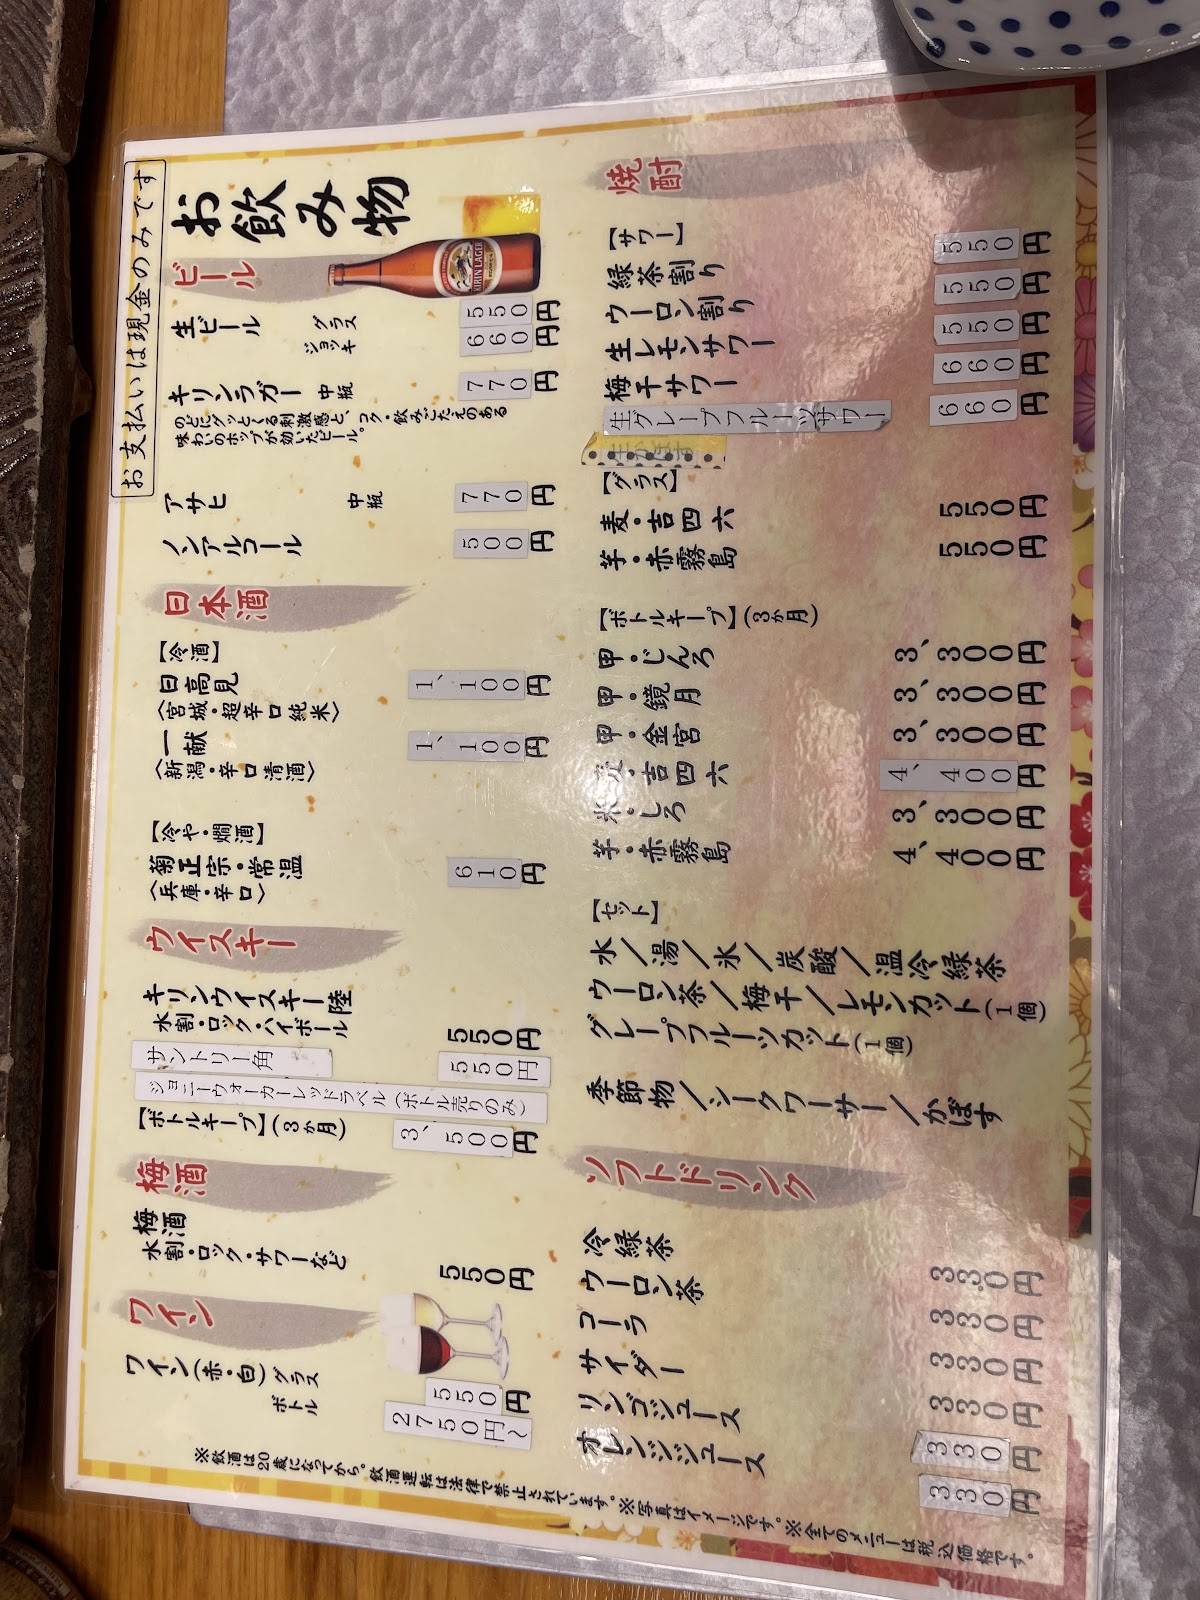 お支払いは現金のみです
お飲み物
KIRIN LAGER
ビール
生ビール グラス 550円
ジョッキ 660円
キリンラガー 中瓶 770円
のどにグッとくる刺激感と、コク・飲みごたえのある
味わいのホップが効いたビール。
アサヒ 中瓶 770円
ノンアルコール 500円
日本酒
【冷酒】
日高見 1、100円
〈宮城・超辛口純米〉
一献 1、100円
〈新潟・辛口清酒〉
【冷や・燗酒】
菊正宗・常温 610円
〈兵庫・辛口〉
ウイスキー
キリンウイスキー陸
水割・ロック・ハイボール 550円
サントリー角 550円
ジョニーウォーカーレッドラベル（ボトル売りのみ）
【ボトルキープ】(3か月) 3、500円
梅酒
梅酒
水割・ロック・サワーなど 550円
ワイン
ワイン(赤・白) グラス 550円
ボトル 2750円～
焼酎
【サワー】
緑茶割り 550円
ウーロン割り 550円
生レモンサワー 550円
梅干サワー 660円
生グレープフルーツサワー 660円
【グラス】
麦・吉四六 550円
芋・赤霧島 550円
【ボトルキープ】(3か月)
甲・じんろ 3、300円
甲・鏡月 3、300円
甲・金宮 3、300円
麦・吉四六 4、400円
米・しろ 3、300円
芋・赤霧島 4、400円
【セット】
水／湯／氷／炭酸／温冷緑茶
ウーロン茶／梅干／レモンカット(1個)
グレープフルーツカット(1個)
季節物／シークワーサー／かぼす
ソフトドリンク
冷緑茶 330円
ウーロン茶 330円
コーラ 330円
サイダー 330円
リンゴジュース 330円
オレンジジュース 330円
※飲酒は20歳になってから。飲酒運転は法律で禁止されています。※写真はイメージです。※全てのメニューは税込価格です。